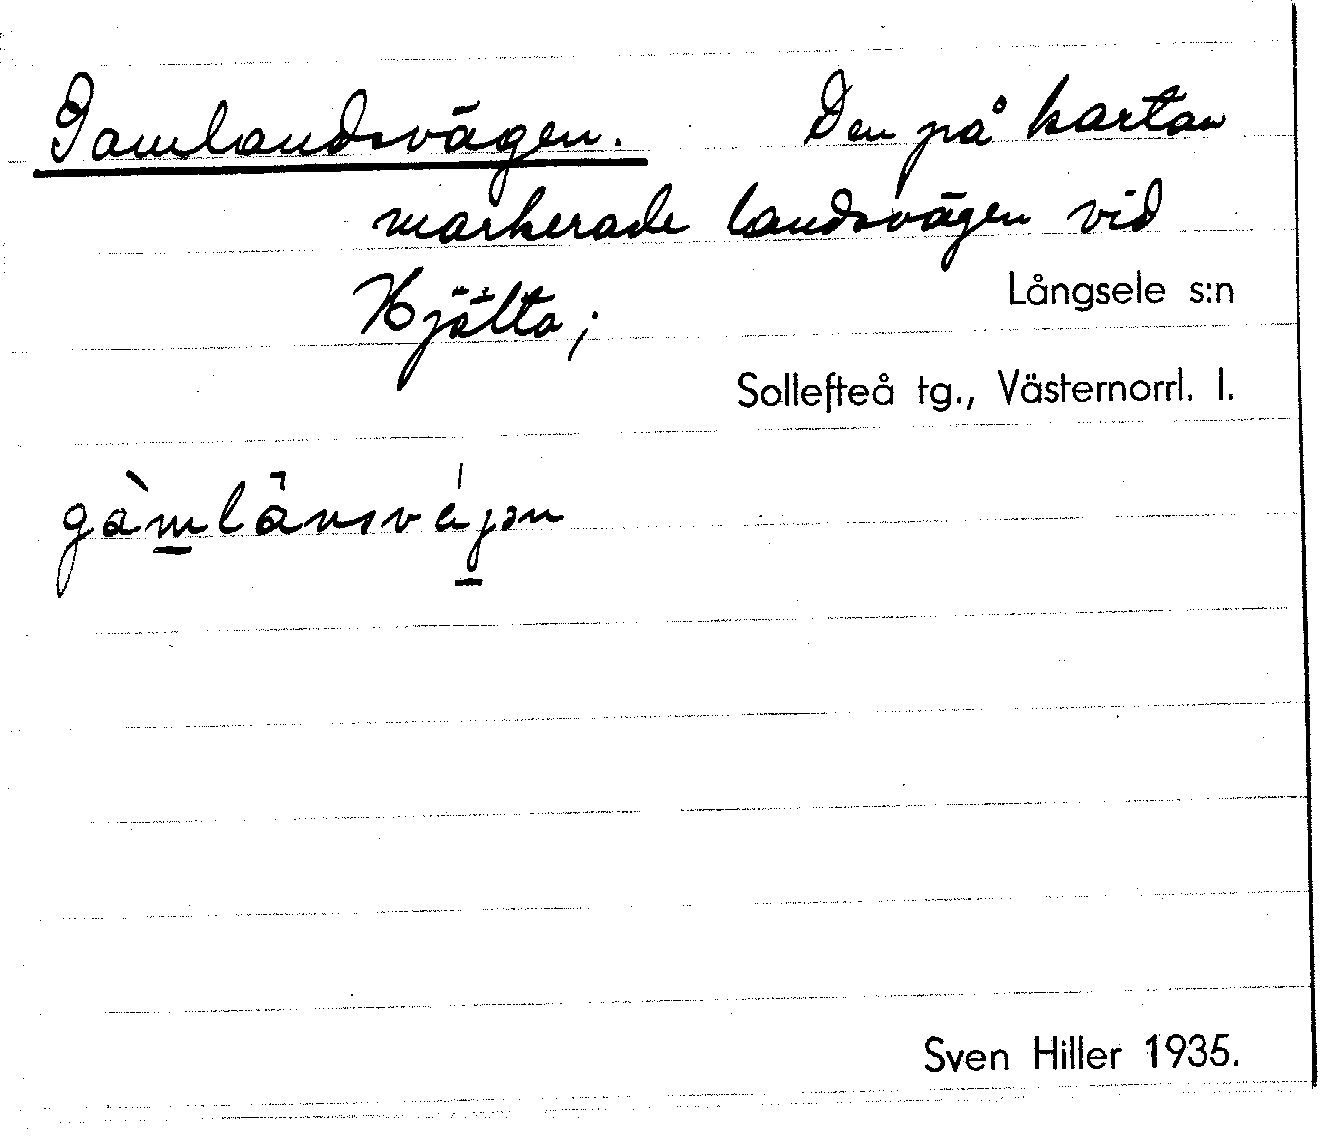 Gamlandsvägen. Den på kartan
markerade landsvägen vid
Hjälta;
Långsele s:n
Sollefteå tg., Västernorrl. l.
gàmlánsvéjən
Sven Hiller 1935.